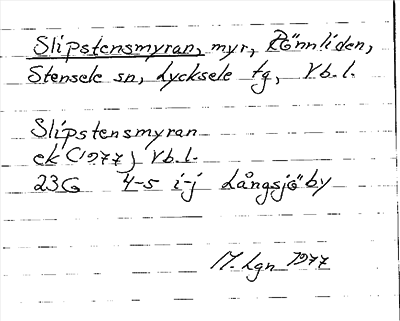 Slipstensmyran, myr, Rönnliden,
Stensele sn, Lycksele tg, Vb.l.
Slipstensmyran
ek (1977) Vb.l.
23G 4-5 i-j Långsjöby
M. Lgn 1977